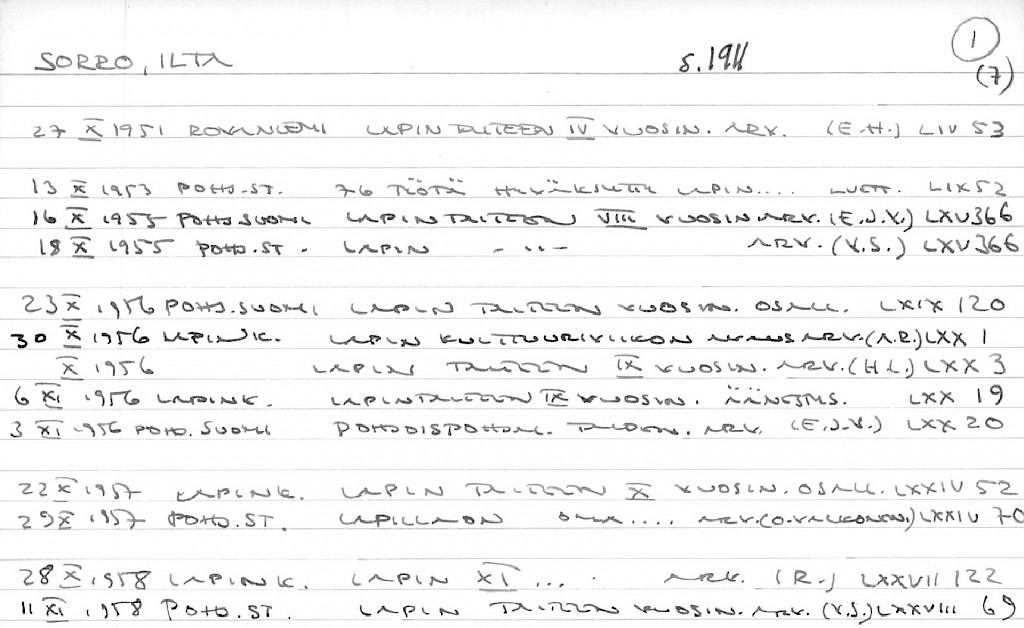 1
SORRO, ILTA s. 1911
(7)
27 X 1951 ROVANIEMI LAPIN TAITEEN IV VUOSIN. ARV. (E.H.) LIV 53
13 X 1953 POHJ.ST. 76 TYÖTÄ HYVÄKSYTTY LAPIN.... LUETT. LIX 52
16 X 1955 POHJ.SUOMI LAPIN TAITEEN VIII VUOSIN ARV. (E.J.V.) LXV 366
18 X 1955 POHJ.ST. LAPIN - " - ARV. (V.S.) LXV 366
23 X 1956 POHJ.SUOMI LAPIN TAITEEN VUOSIN. OSALL. LXIX 120
30 X 1956 LAPIN K. LAPIN KULTTUURIVIIKON AVAUS ARV. (A.R.) LXX 1
X 1956 LAPIN TAITEEN IX VUOSIN. ARV. (H.L.) LXX 3
6 XI 1956 LAPIN K. LAPIN TAITEEN IX VUOSIN. ÄÄNEST. LXX 19
3 XI 1956 POHJ.SUOMI POHJOISPOHJAL. TAIDEN. ARV. (E.J.V.) LXX 20
22 X 1957 LAPIN K. LAPIN TAITEEN X VUOSIN. OSALL. LXXIV 52
29 X 1957 POHJ.ST. LAPILLA ON OMA .... ARV. (O. VALKONEN.) LXXIV 70
28 X 1958 LAPIN K. LAPIN XI ... . ARV. (R.) LXXVII 122
11 XI 1958 POHJ.ST. LAPIN TAITEEN VUOSIN. ARV. (V.S.) LXXVIII 69